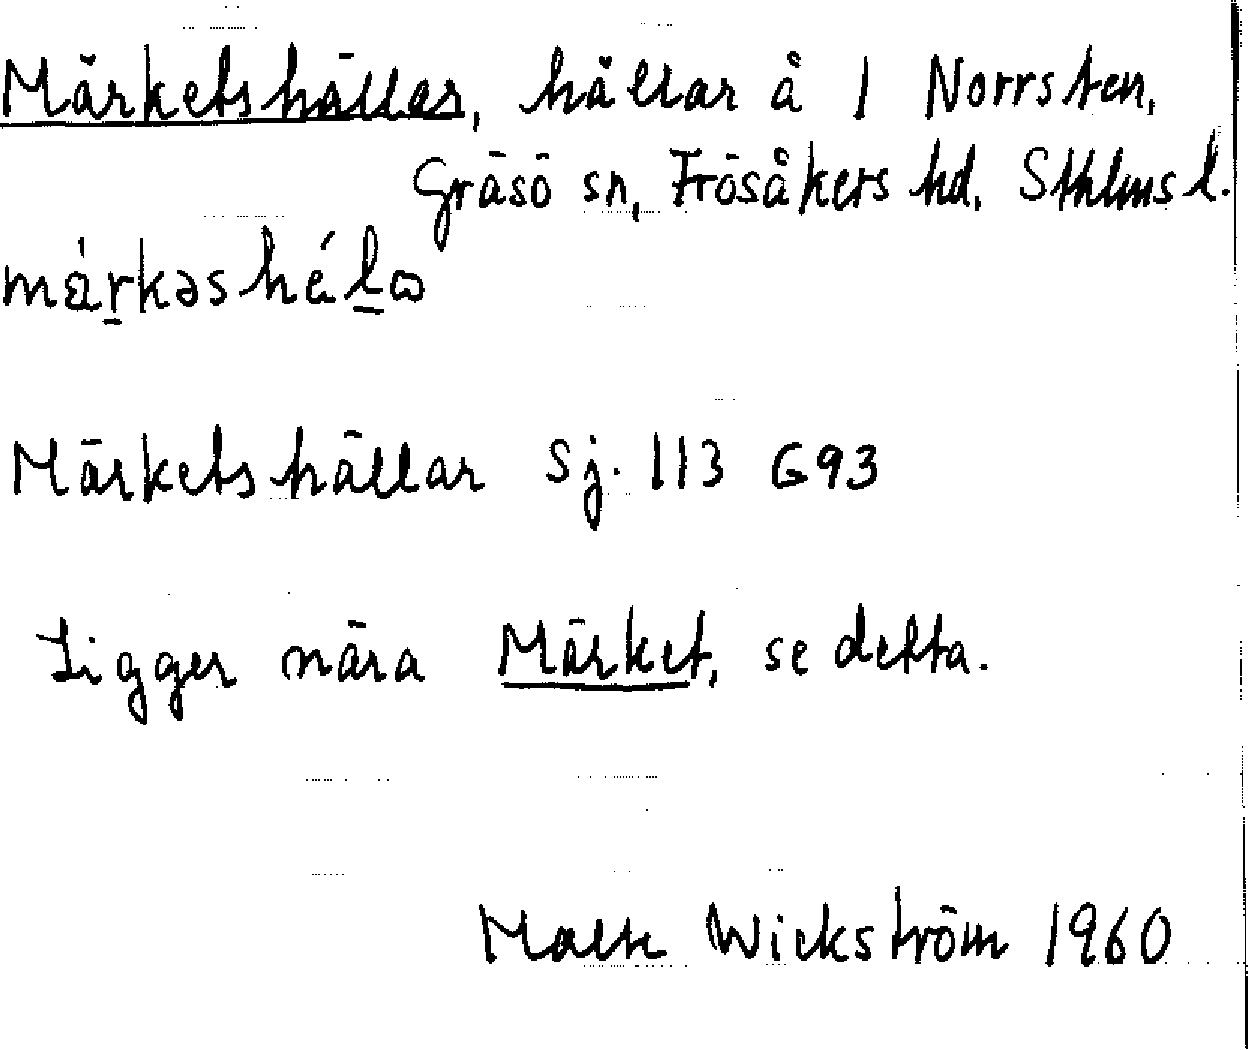 Märketshällar, hällar å 1 Norrsten,
Gräsö sn, Frösåkers hd, Sthlms l.
märkəshéla
Märketshällar Sj. 113 G93
Ligger nära Märket, se detta.
Malte Wickström 1960